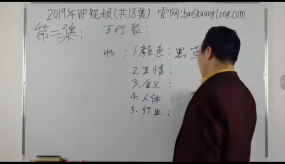 2019年VIP视频(共18集) 官网:baoshuangtong.com
第二集: 五行象:
水: 1.颜色:黑、蓝
2.五情:
3.含义:
4.人体
5.行业;